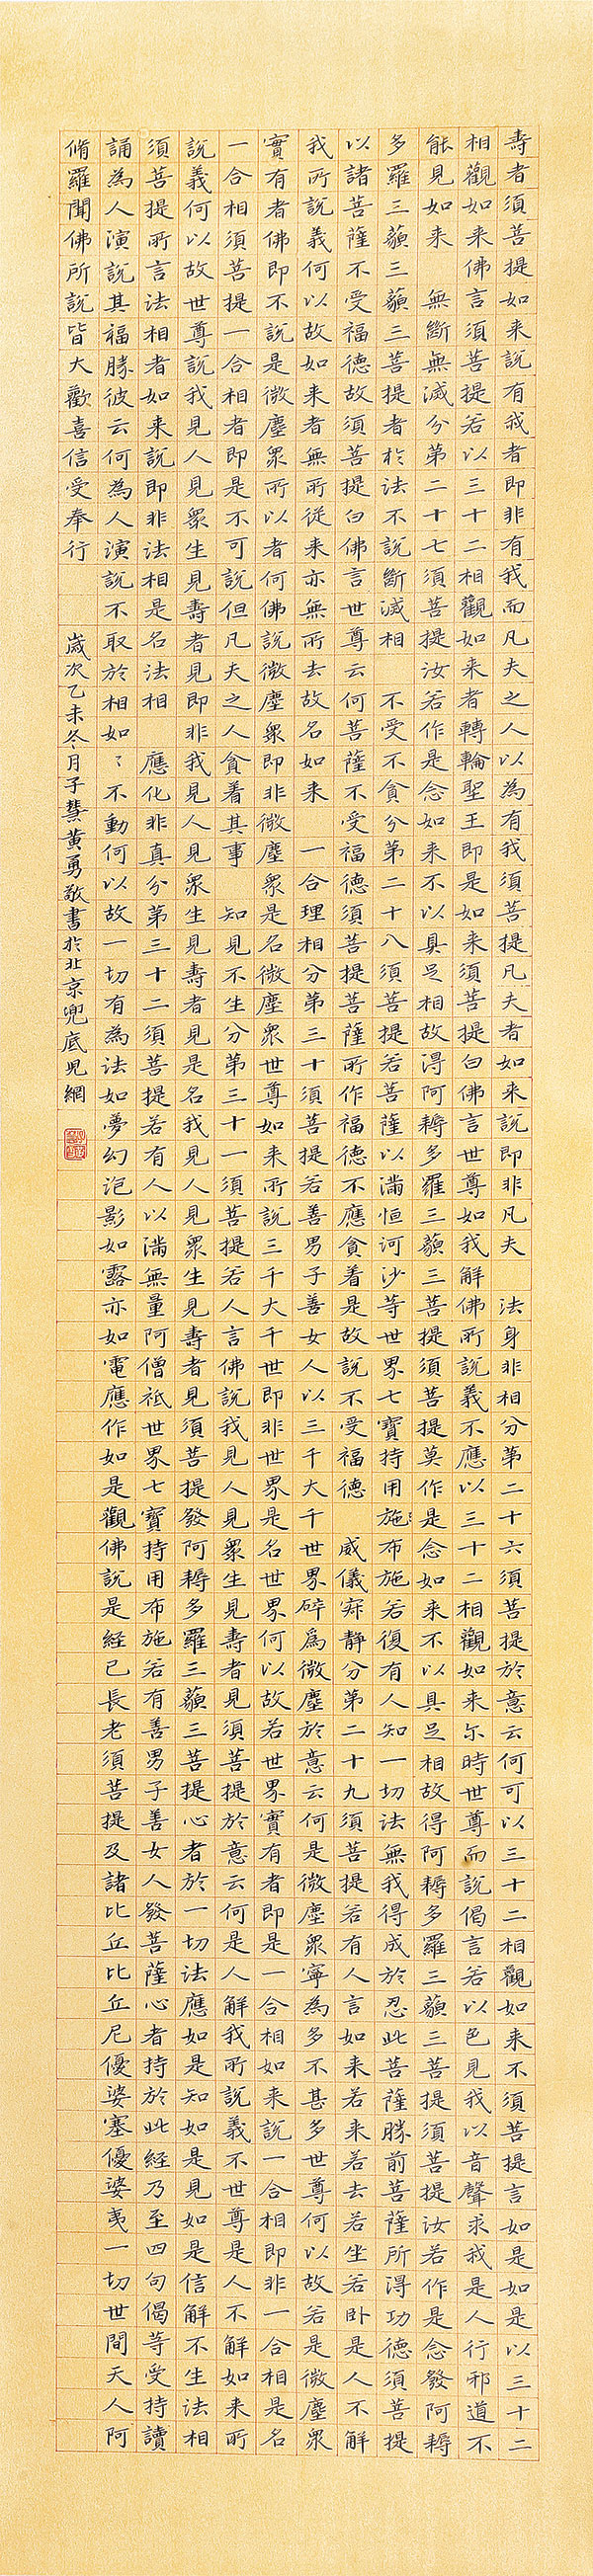 壽者須菩提如来説有我者即非有我而凡夫之人以為有我須菩提凡夫者如来説即非凡夫　法身非相分第二十六須菩提於意云何可以三十二相觀如来不須菩提言如是如是以三十二
相觀如来佛言須菩提若以三十二相觀如来者轉輪聖王即是如来須菩提白佛言世尊如我解佛所説義不應以三十二相觀如来尓時世尊而説偈言若以色見我以音聲求我是人行邪道不
能見如来　無斷無滅分第二十七須菩提汝若作是念如来不以具足相故得阿耨多羅三藐三菩提須菩提莫作是念如来不以具足相故得阿耨多羅三藐三菩提須菩提汝若作是念發阿耨
多羅三藐三菩提者於法不説斷滅相　不受不貪分第二十八須菩提若菩薩以滿恒河沙等世界七寶持用施布施若復有人知一切法無我得成於忍此菩薩勝前菩薩所得功德須菩提
以諸菩薩不受福德故須菩提白佛言世尊云何菩薩不受福德須菩提菩薩所作福德不應貪着是故説不受福德　威儀寂静分第二十九須菩提若有人言如来若来若去若坐若卧是人不解
我所説義何以故如来者無所従来亦無所去故名如来　一合理相分第三十須菩提若善男子善女人以三千大千世界碎為微塵於意云何是微塵衆寧為多不甚多世尊何以故若是微塵衆
實有者佛即不説是微塵衆所以者何佛説微塵衆即非微塵衆是名微塵衆世尊如来所説三千大千世即非世界是名世界何以故若世界實有者即是一合相如来説一合相即非一合相是名
一合相須菩提一合相者即是不可説但凡夫之人貪着其事　知見不生分第三十一須菩提若人言佛説我見人見衆生見壽者見須菩提於意云何是人解我所説義不世尊是人不解如来所
説義何以故世尊説我見人見衆生見壽者見即非我見人見衆生見壽者見是名我見人見衆生見壽者見須菩提發阿耨多羅三藐三菩提心者於一切法應如是知如是見如是信解不生法相
須菩提所言法相者如来説即非法相是名法相　應化非真分第三十二須菩提若有人以滿無量阿僧祇世界七寶持用布施若有善男子善女人發菩薩心者持於此経乃至四句偈等受持讀
誦為人演説其福勝彼云何為人演説不取於相如〻不動何以故一切有為法如夢幻泡影如露亦如電應作如是觀佛説是経已長老須菩提及諸比丘比丘尼優婆塞優婆夷一切世間天人阿
脩羅聞佛所説皆大歡喜信受奉行　歲次乙未冬月子慧黄勇敬書於北京兜底児網